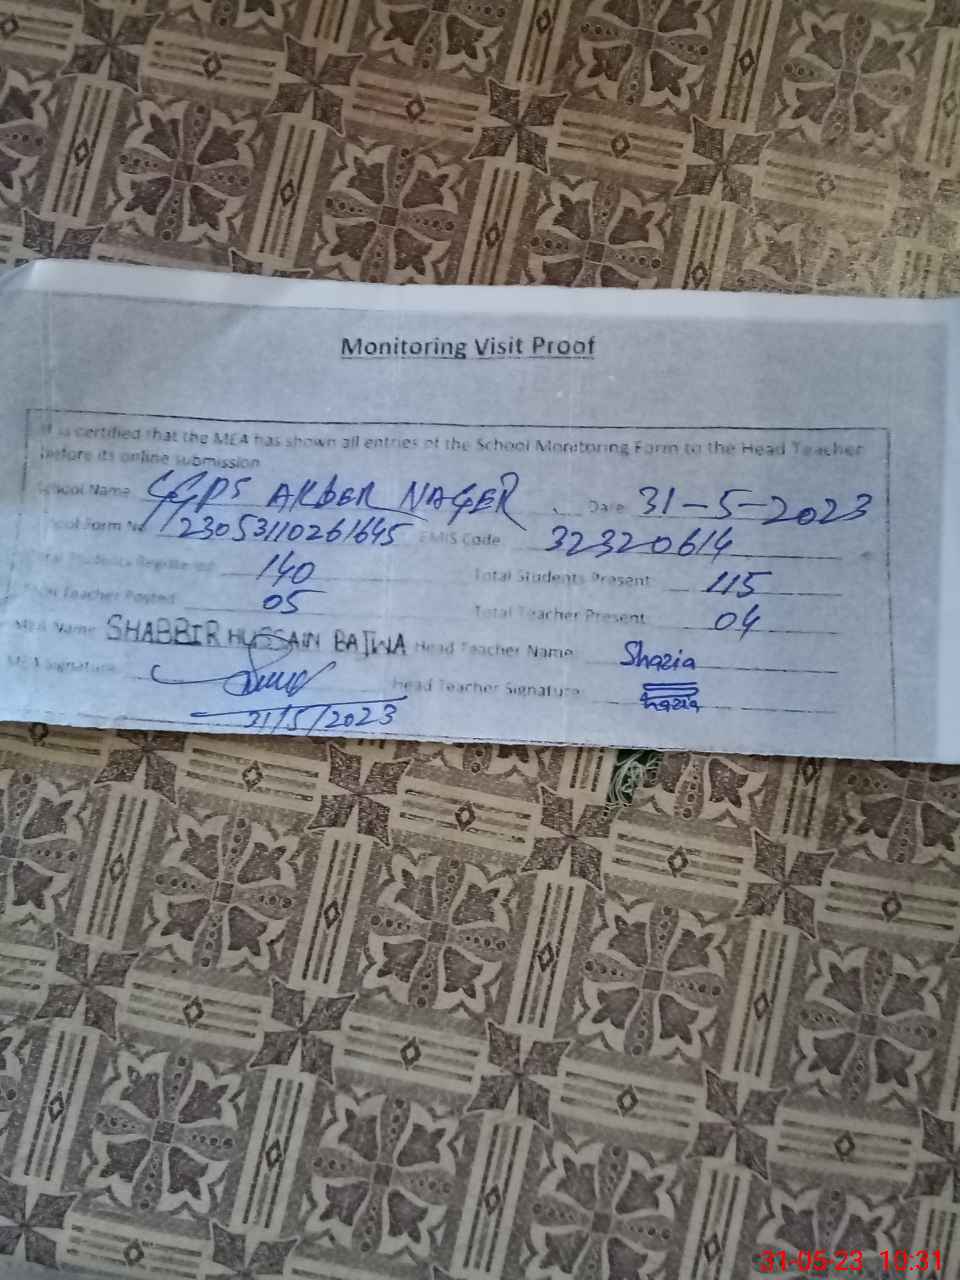 Monitoring Visit Proof
It is certified that the MEA has shown all entries of the School Monitoring Form to the Head Teacher
before its online submission
School Name GGPS AKBER NAGER Date 31-5-2023
School Form No 123053110261645 EMIS Code 32320614
Total Students Registered 140 Total Students Present 115
Teacher Posted 05 Total Teacher Present 04
MEA Name SHABBIR HUSSAIN BAJWA Head Teacher Name Shazia
MEA Signature Head Teacher Signature Shazia
31/5/2023
31-05-23 10:31